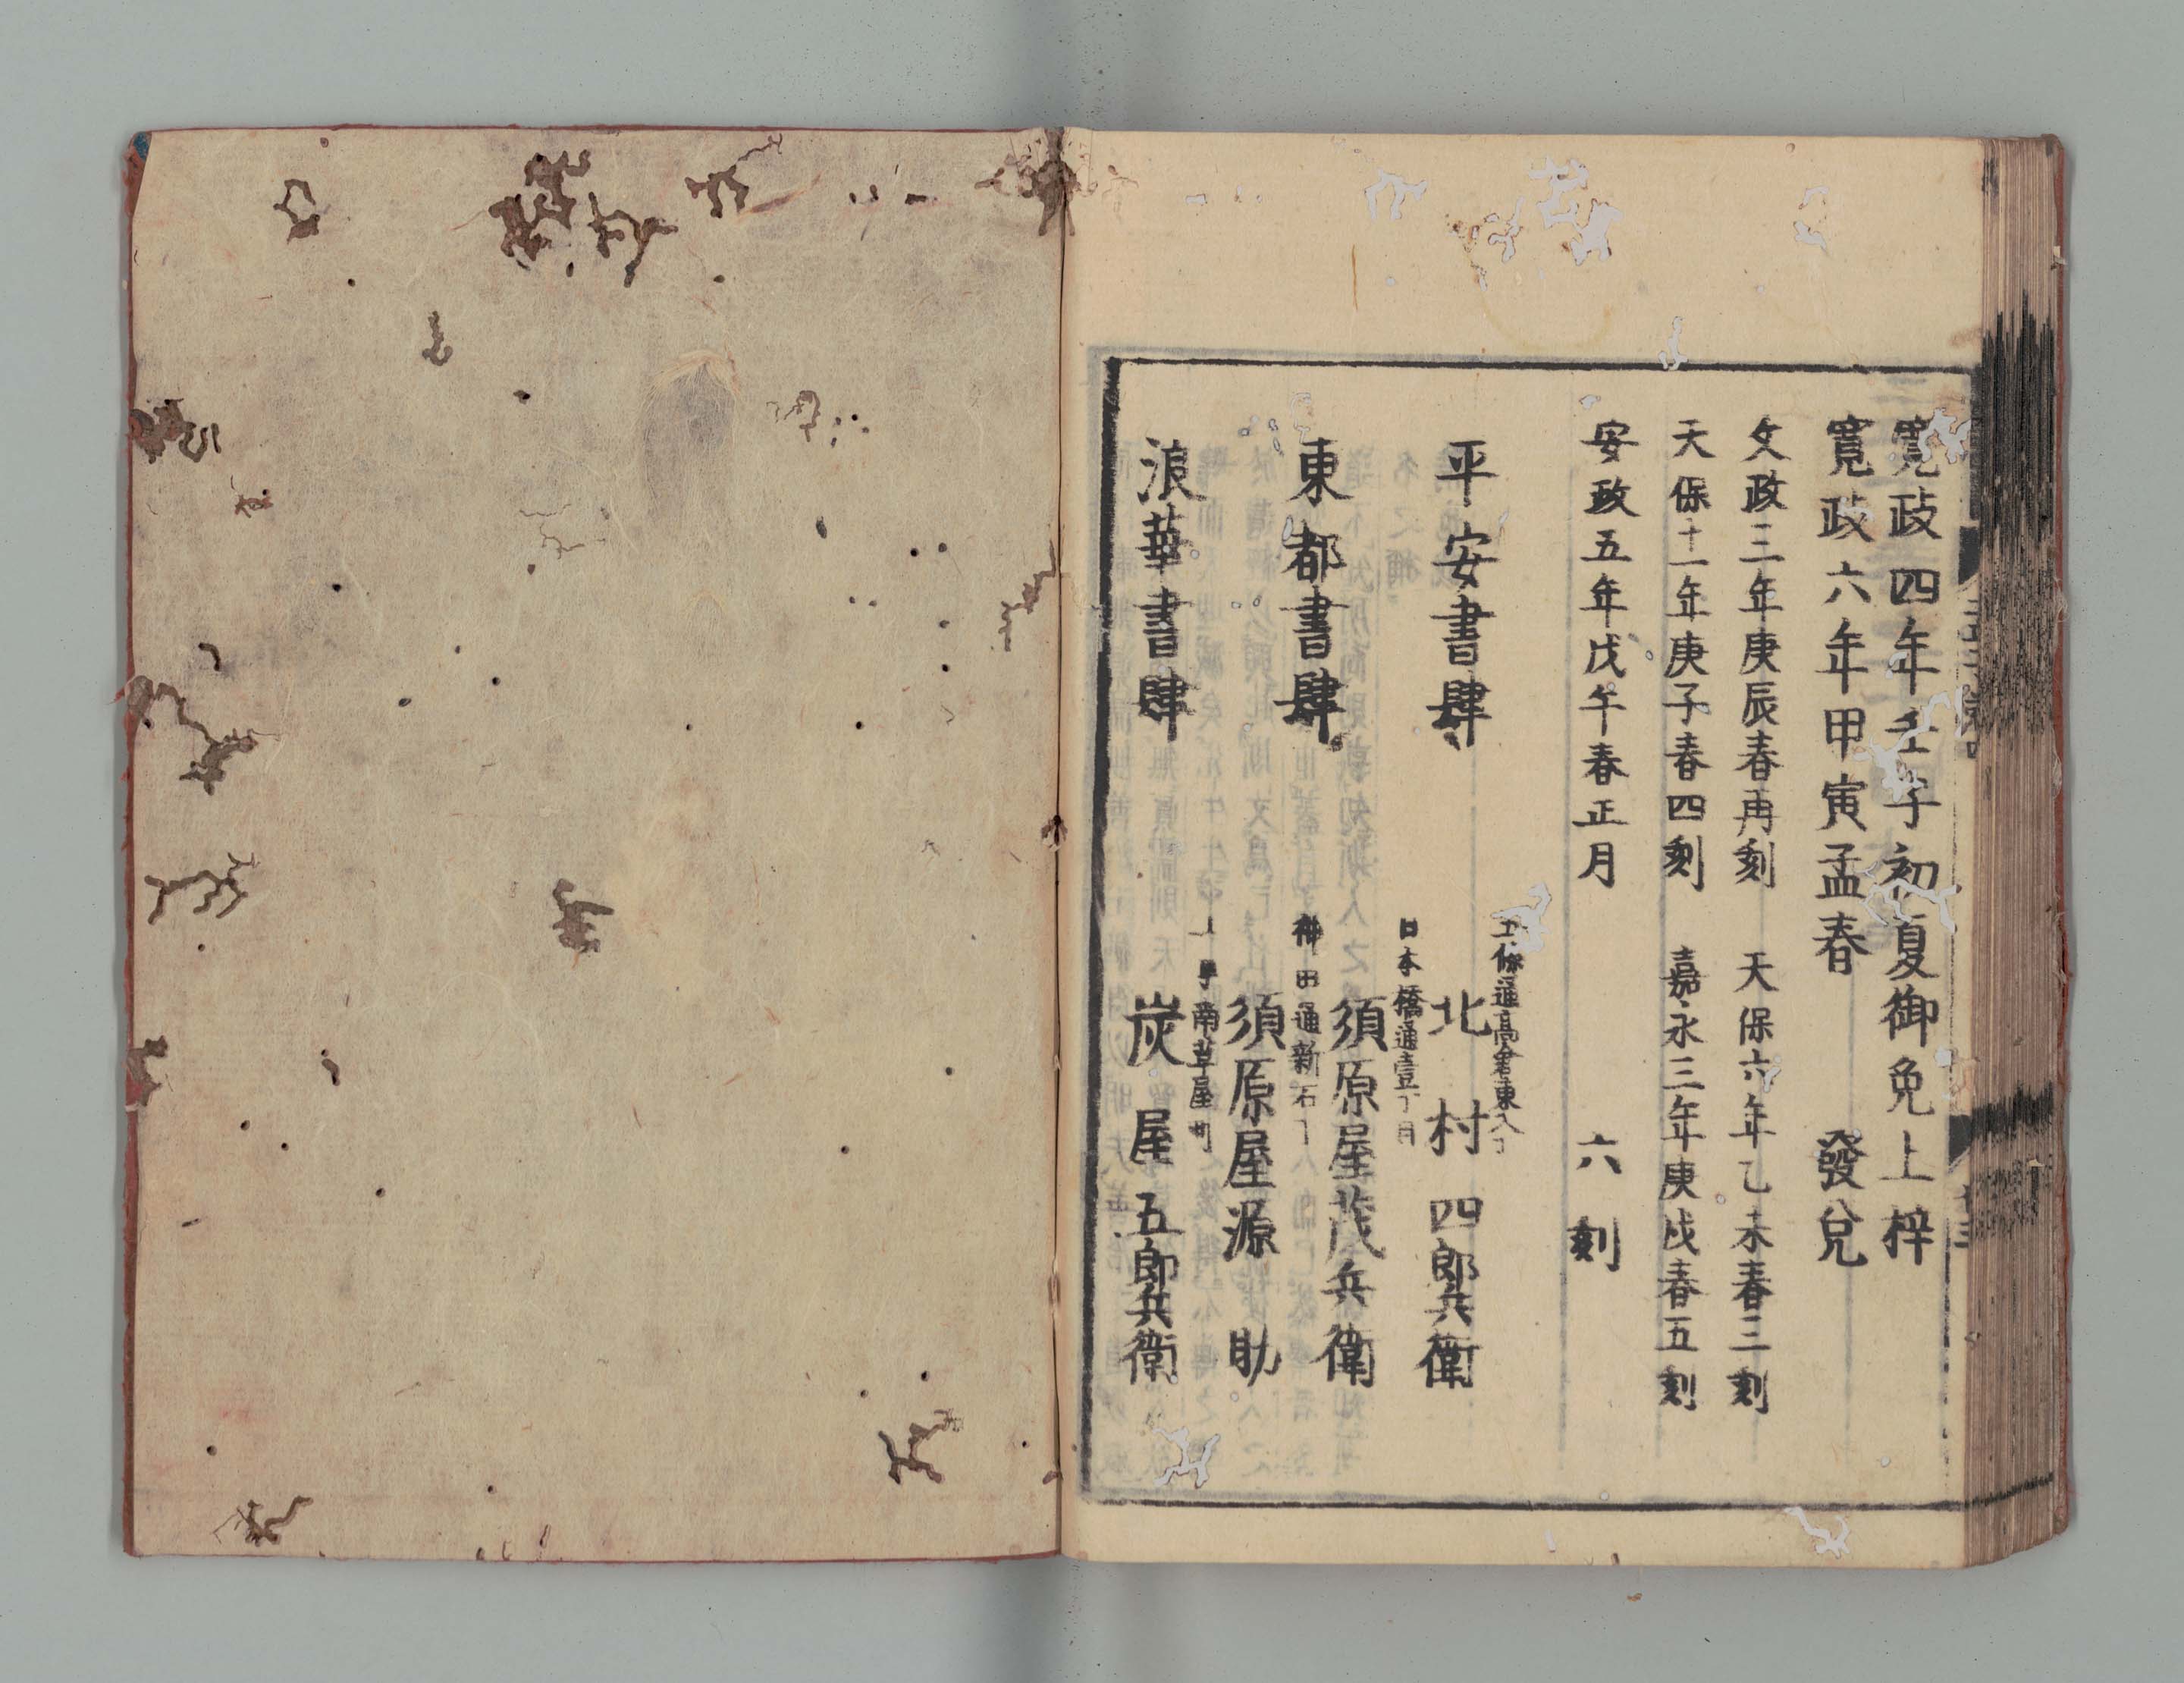 寛政四年壬子初夏御免上梓
寛政六年甲寅孟春 發兌
文政三年庚辰春再刻 天保六年乙未春三刻
天保十一年庚子春四刻 嘉永三年庚戌春五刻
安政五年戊午春正月 六刻
五條通高倉東入丁
平安書肆 北村四郎兵衛
日本橋通壹丁目
東都書肆 須原屋茂兵衛
神田通新石丁
須原屋源助
南草屋町
浪華書肆 炭屋五郎兵衛